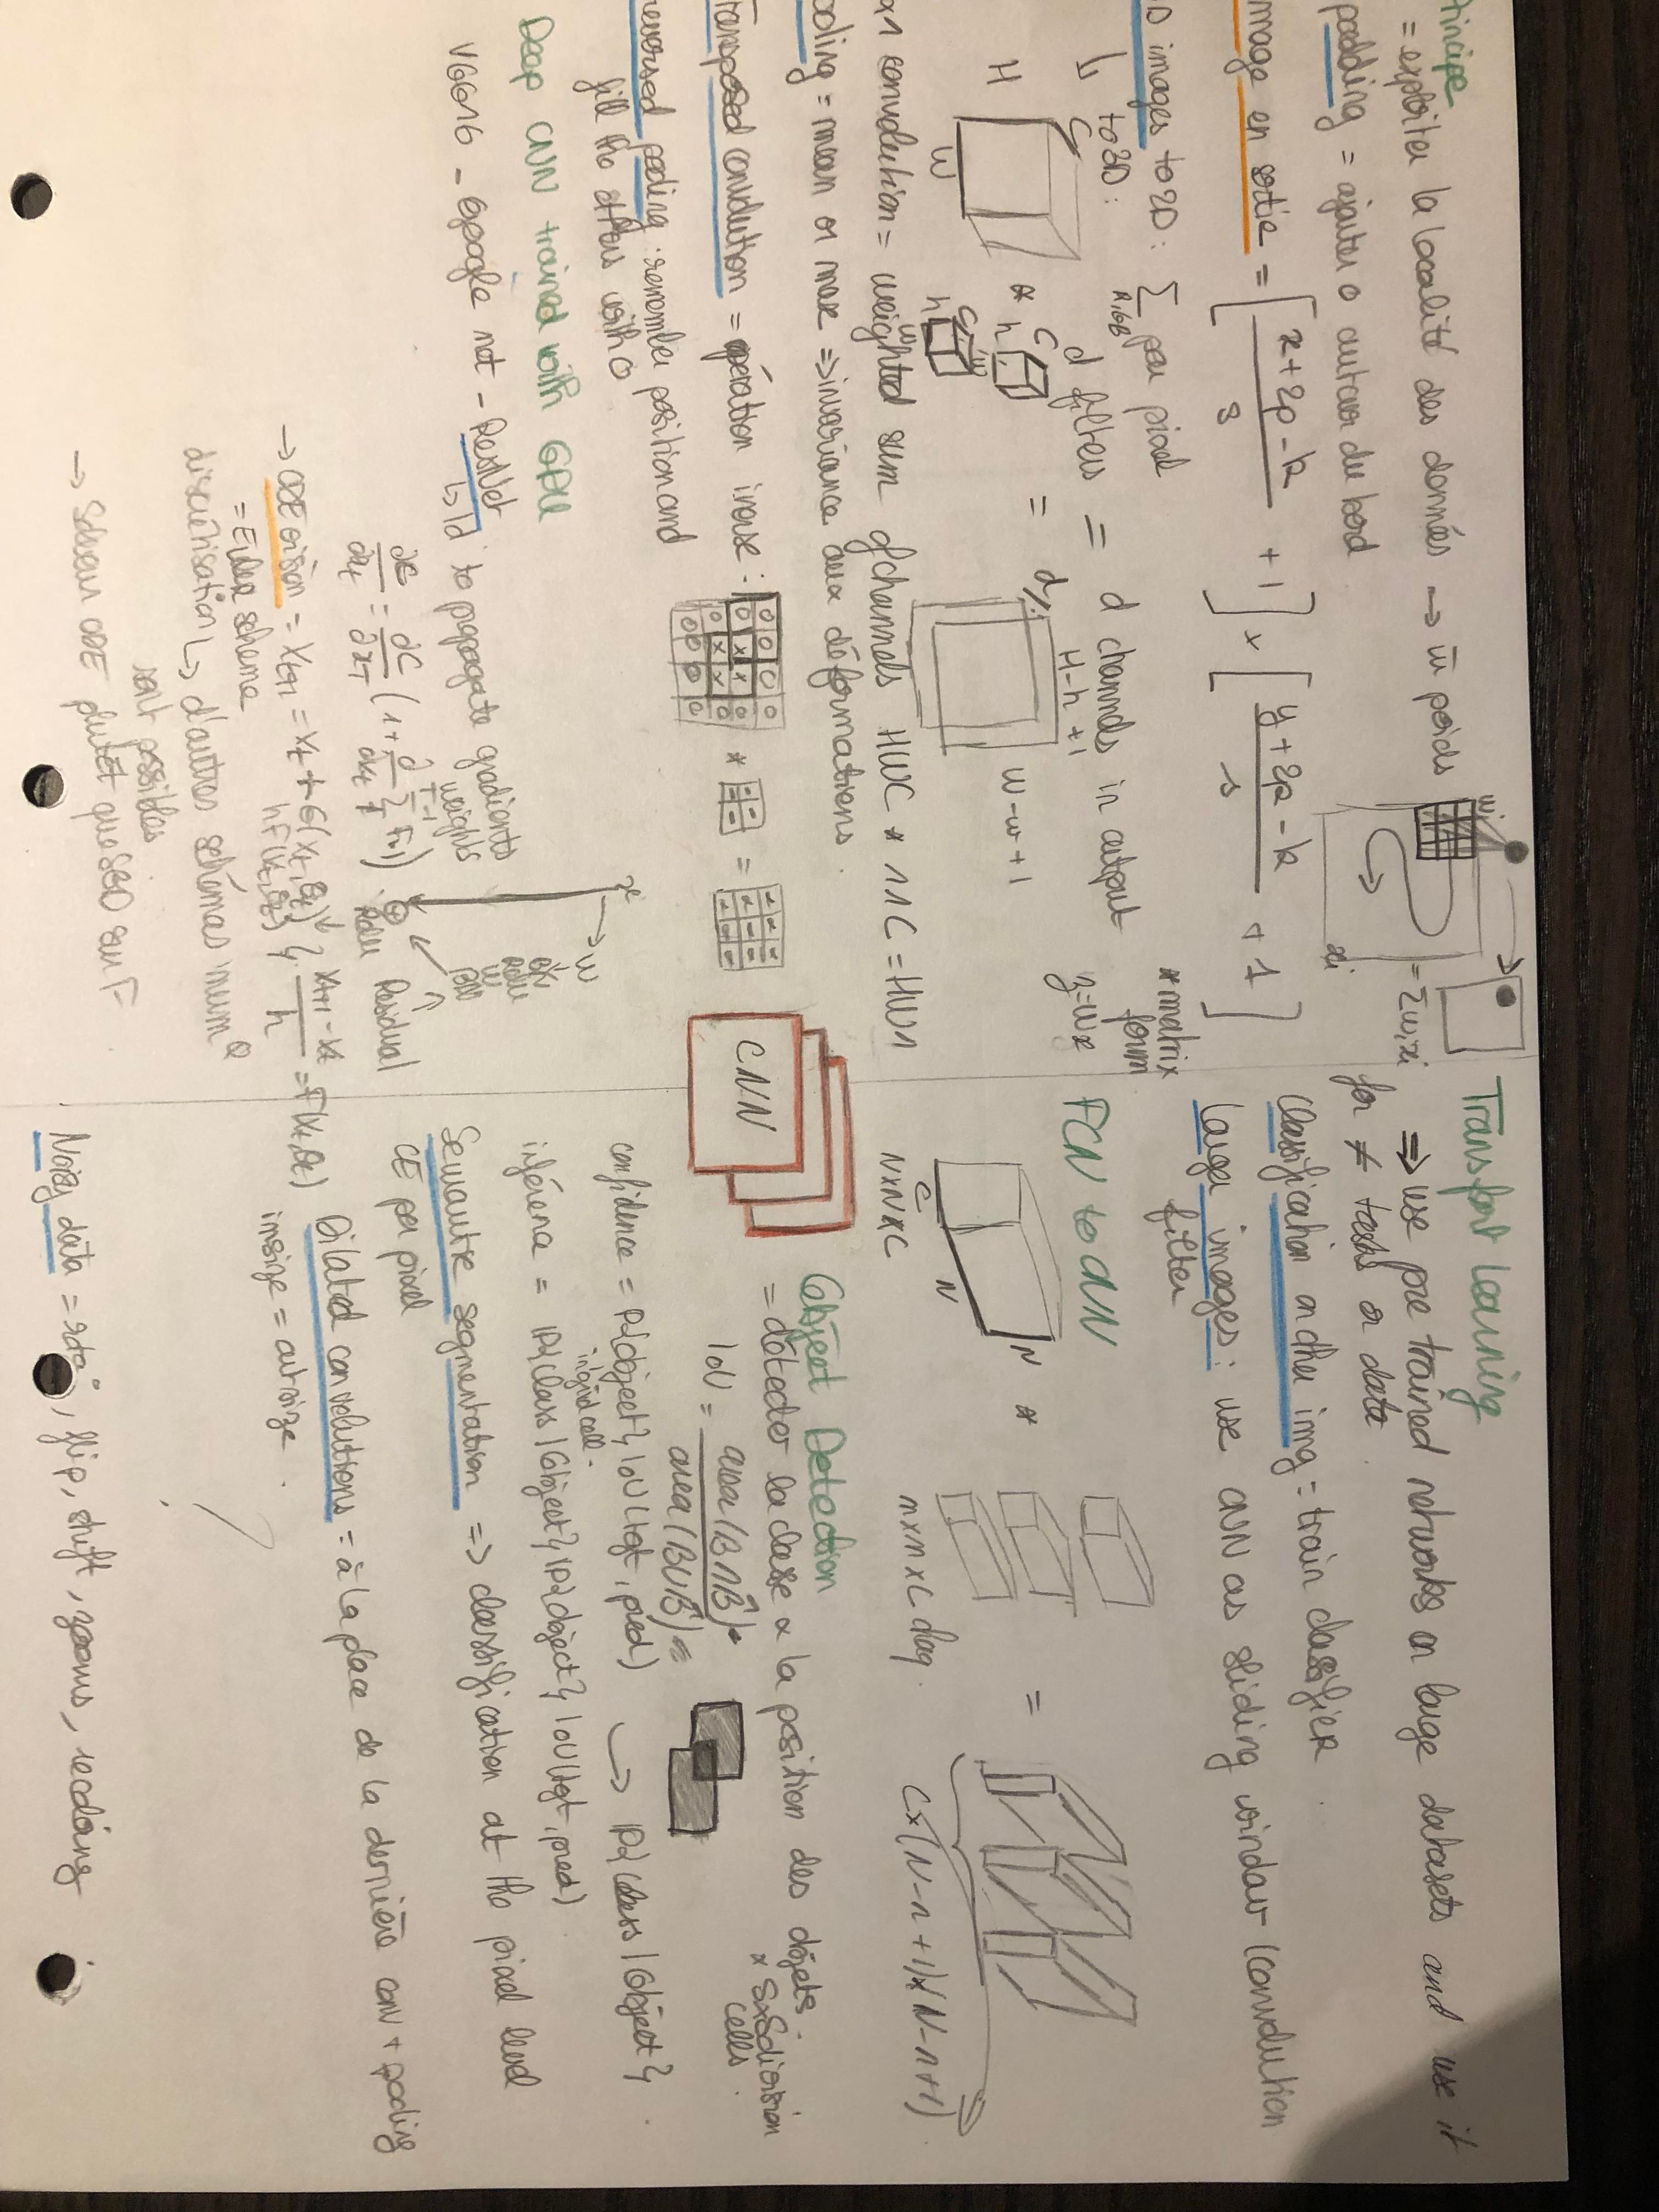 Principe
= exploiter la localité des données → w poids
wi
xi
= Σwixi
padding = ajouter 0 autour du bord
image en sortie = [ x+2p-k / s + 1 ] x [ y+2p-k / s + 1 ]
3D images to 2D : Σ R,G,B per pixel
* matrix form
z=wx
↳ to 3D : d filters = d channels in output
H
W
C
*
h
C
w
= d
H-h+1
W-w+1
1x1 convolution = weighted sum of channels HWC * 11C = HW1
pooling = mean or max ⇒ invariance aux déformations.
Transposed convolution = opération inverse :
* =
reversed pooling : remember position and
fill the others with 0
Deep CNN trained with GPU
VGG16 - Google net - ResNet
↳ Id to propagate gradients
weights
→ ODE vision = xt+1 = xt + G(xt, θt)
hF(xt, θt)
xt+1 - xt / h = F(xt, θt)
= Euler scheme
discrétisation ↳ d'autres schémas num
sont possibles
→ Solveur ODE plutôt que SGD sur F
x
w
Relu
w
BN
⊕
Relu
Residual
CNN
Transfert Learning
⇒ use pre trained networks on large datasets and use it
for ≠ tasks or data
Classification on the img = train classifier.
Large images : use CNN as sliding window (convolution
filter
FCN to CNN
N
N
C
NxNxC
*
nxnxC
=
Cx(N-n+1)x(N-n+1)
Object Detection
= détecter la classe & la position des objets.
* SxS division
cells.
IoU = area(B∩B̂) / area(B∪B̂) =
confidence = P{object} IoU(gt, pred) → P{class|object}
in grid cell.
inférence = P{class|object} P{object} IoU(gt, pred)
Semantic segmentation ⇒ classification at the pixel level
CE per pixel
Dilated convolutions = à la place de la dernière conv + pooling
insize = outsize.
Noisy data = rota°, flip, shift, zooms, scaling